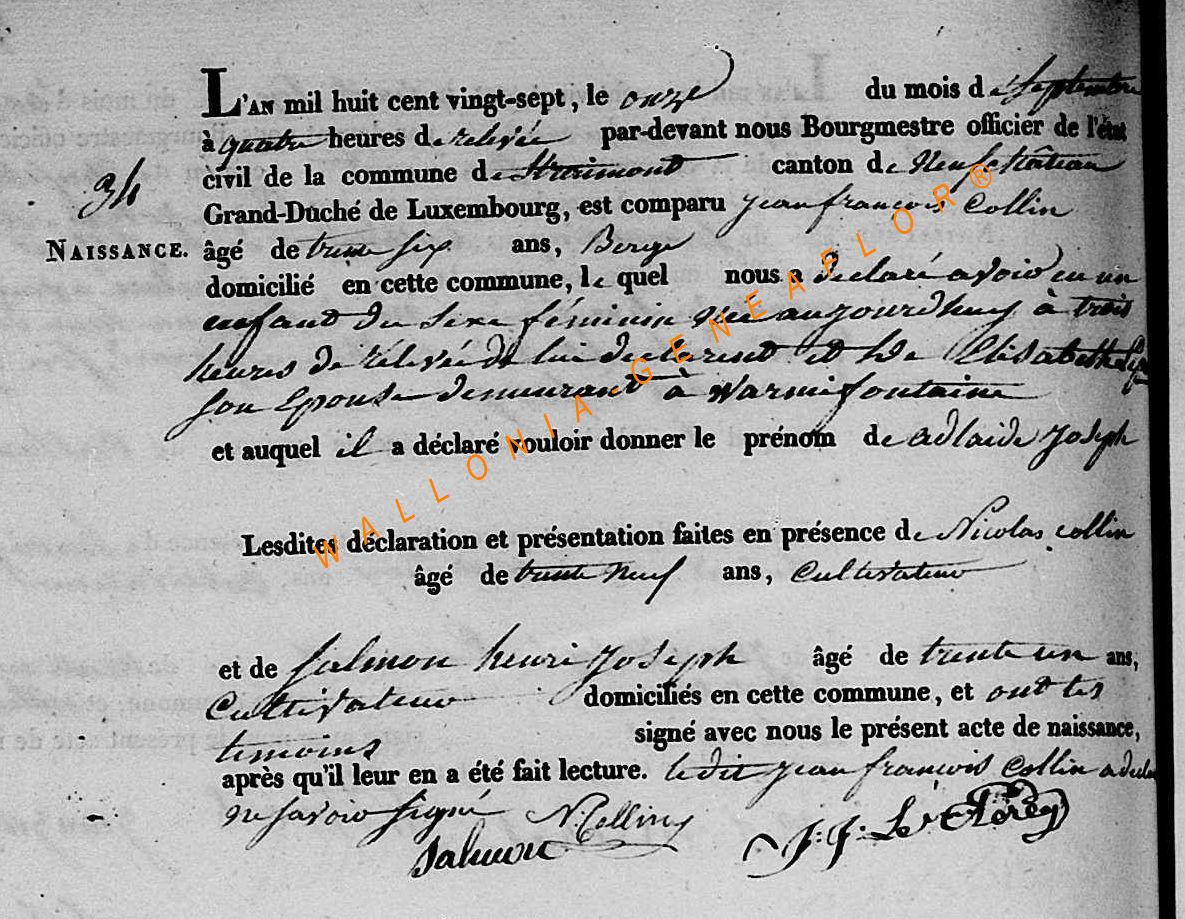 L'AN mil huit cent vingt-sept, le onze du mois de septembre
à quatre heures de relevée par-devant nous Bourgmestre officier de l'état
civil de la commune de Straimont canton de Neufchâteau
34
Grand-Duché de Luxembourg, est comparu jean françois Collin
NAISSANCE. âgé de trente six ans, Berger
domicilié en cette commune, le quel nous a declaré avoir eu un
enfant du sexe féminin née aujourdhuy à trois
heures de rélevée de lui declarent et de Elisabethe
son Epouse demeurant à Warmifontaine
et auquel il a déclaré vouloir donner le prénom de adlaide Joseph
Lesdites déclaration et présentation faites en présence de Nicolas Collin
âgé de trente neuf ans, Cultivateur
et de Salmon henri Joseph âgé de trente un ans,
Cultivateur domiciliés en cette commune, et ont les
temoins signé avec nous le présent acte de naissance,
après qu'il leur en a été fait lecture. le dit jean françois Collin a
ne savoir signé N. Collin
Salmon J: J:
WALLONIA GENEAFLOR®